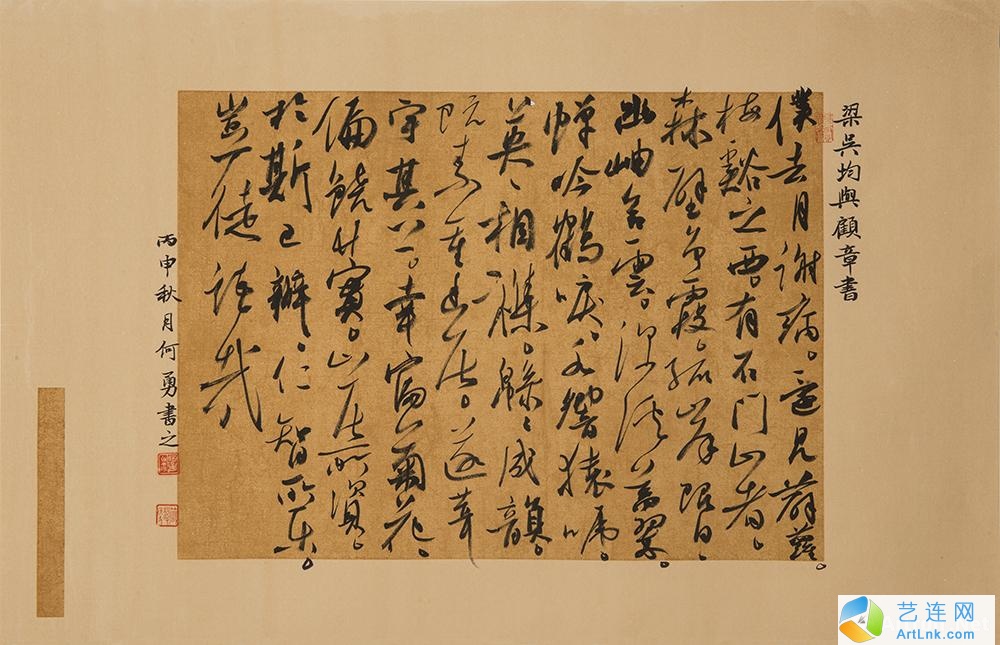 梁吴均與顧章書
僕去月谢病。還見薜蘿。
梅谿之西。有石门山者。
森壁争霞。孤峯限日、
幽岫含雲。深溪蓄翠。
蟬吟鶴唳、水響猿啼。
英〻相雜。緜〻成韻。
既素重幽居。遂葺
宇其上。幸富菊花。
偏饒竹實。山居所資。
於斯已辦。仁智所樂。
豈徒語哉
丙申秋月何勇書之
艺连网
ArtLnk.com